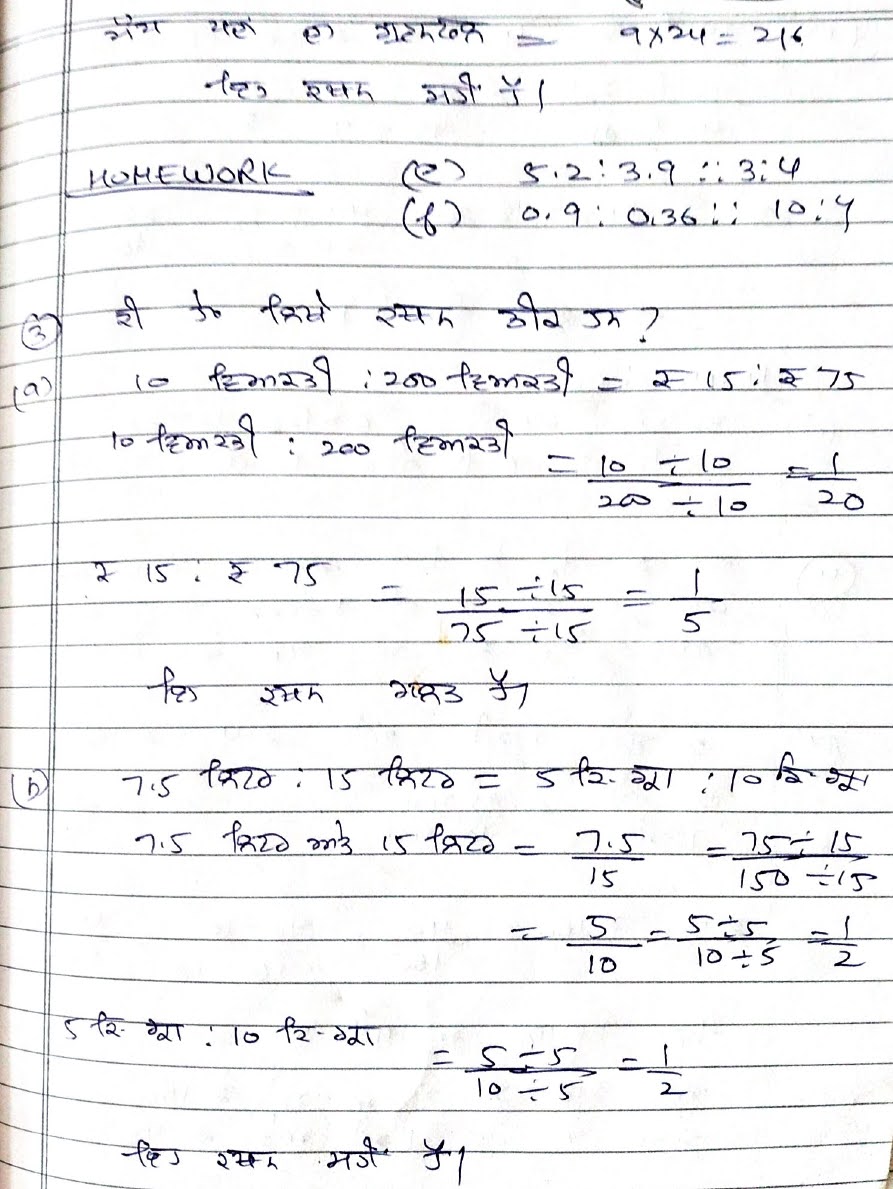 ਮੱਧ ਪਦਾਂ ਦਾ ਗੁਣਨਫਲ = 9×24 = 216
ਇਹ ਕਥਨ ਸਹੀ ਹੈ।
HOMEWORK (e) 5.2 : 3.9 :: 3 : 4
(f) 0.9 : 0.36 :: 10 : 4
③ ਕੀ ਹੇਠ ਲਿਖੇ ਕਥਨ ਠੀਕ ਹਨ?
(a) 10 ਵਿਅਕਤੀ : 200 ਵਿਅਕਤੀ = ₹ 15 : ₹ 75
10 ਵਿਅਕਤੀ : 200 ਵਿਅਕਤੀ = 10 ÷ 10 / 200 ÷ 10 = 1/20
₹ 15 : ₹ 75 = 15 ÷ 15 / 75 ÷ 15 = 1/5
ਇਹ ਕਥਨ ਗਲਤ ਹੈ।
(b) 7.5 ਲਿਟਰ : 15 ਲਿਟਰ = 5 ਕਿ. ਗ੍ਰਾ : 10 ਕਿ. ਗ੍ਰਾ
7.5 ਲਿਟਰ ਅਤੇ 15 ਲਿਟਰ = 7.5/15 = 75 ÷ 15 / 150 ÷ 15
= 5/10 = 5 ÷ 5 / 10 ÷ 5 = 1/2
5 ਕਿ. ਗ੍ਰਾ : 10 ਕਿ. ਗ੍ਰਾ = 5 ÷ 5 / 10 ÷ 5 = 1/2
ਇਹ ਕਥਨ ਸਹੀ ਹੈ।